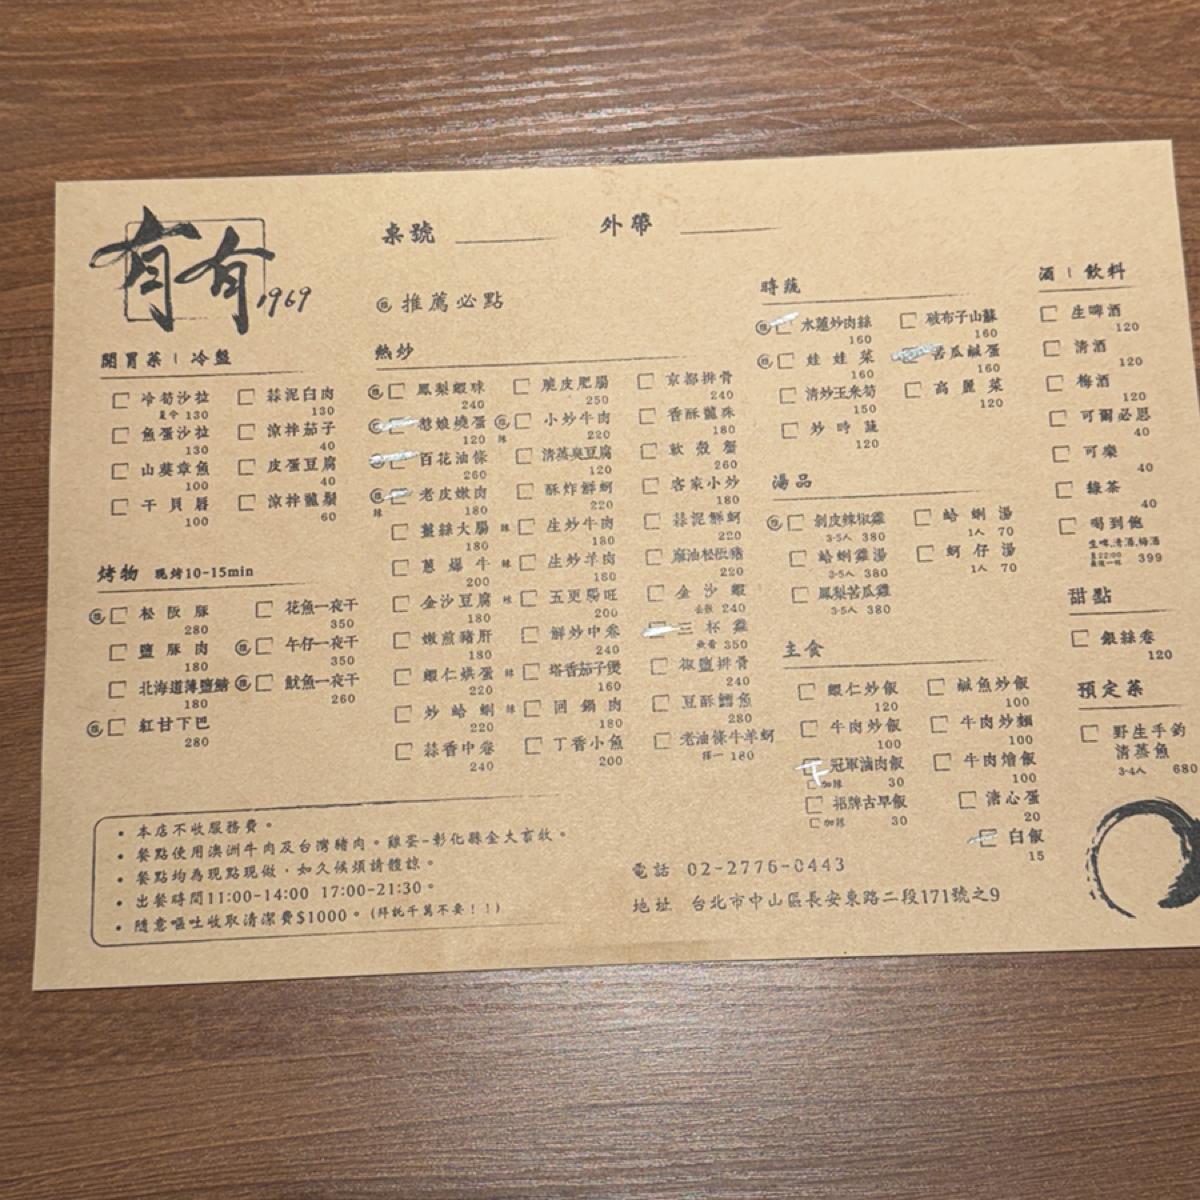 有有 1969
桌號
外帶
推薦必點
開胃菜 | 冷盤
冷筍沙拉
夏令 130
魚蛋沙拉
130
山葵章魚
100
干貝唇
100
蒜泥白肉
130
涼拌茄子
40
皮蛋豆腐
40
涼拌龍鬚
60
烤物 現烤10-15min
松阪豚
280
鹽豚肉
180
北海道薄鹽鯖
180
紅甘下巴
280
花魚一夜干
350
午仔一夜干
350
魷魚一夜干
260
熱炒
鳳梨蝦球
240
憨娘燒蛋
120
百花油條
260
老皮嫩肉
辣 180
薑絲大腸
180
蔥爆牛
200
金沙豆腐
180
嫩煎豬肝
180
蝦仁烘蛋
220
炒蛤蜊
220
蒜香中卷
240
脆皮肥腸
250
小炒牛肉
辣 220
清蒸臭豆腐
120
酥炸鮮蚵
220
辣 生炒牛肉
180
辣 生炒羊肉
180
辣 五更腸旺
200
鮮炒中卷
240
辣 塔香茄子煲
160
辣 回鍋肉
180
丁香小魚
200
京都排骨
240
香酥龍珠
180
軟殼蟹
260
客家小炒
180
蒜泥鮮蚵
220
麻油松阪豬
220
金沙蝦
去殼 240
三杯雞
350
椒鹽排骨
240
豆酥鱈魚
280
老油條牛羊蚵
擇一 180
時蔬
水蓮炒肉絲
160
娃娃菜
160
清炒玉米筍
150
炒時蔬
120
破布子山蘇
160
苦瓜鹹蛋
160
高麗菜
120
湯品
剝皮辣椒雞
3-5人 380
蛤蜊雞湯
3-5人 380
鳳梨苦瓜雞
3-5人 380
蛤蜊湯
1人 70
蚵仔湯
1人 70
主食
蝦仁炒飯
120
牛肉炒飯
100
冠軍滷肉飯
加辣 30
招牌古早飯
加辣 30
鹹魚炒飯
100
牛肉炒麵
100
牛肉燴飯
100
溏心蛋
20
白飯
15
酒 | 飲料
生啤酒
120
清酒
120
梅酒
120
可爾必思
40
可樂
40
綠茶
40
喝到飽
生啤,清酒,梅酒
至22:00
最後一杯 399
甜點
銀絲卷
120
預定菜
野生手釣
清蒸魚
3-4人 680
• 本店不收服務費。
• 餐點使用澳洲牛肉及台灣豬肉。雞蛋-彰化縣金大畜牧。
• 餐點均為現點現做，如久候煩請體諒。
• 出餐時間11:00-14:00 17:00-21:30。
• 隨意嘔吐收取清潔費$1000。(拜託千萬不要！！)
電話 02-2776-0443
地址 台北市中山區長安東路二段171號之9